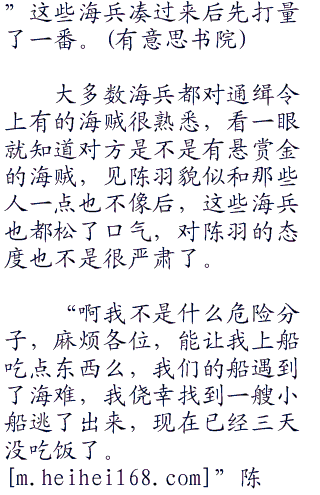 ”这些海兵凑过来后先打量
了一番。(有意思书院)
大多数海兵都对通缉令
上有的海贼很熟悉，看一眼
就知道对方是不是有悬赏金
的海贼，见陈羽貌似和那些
人一点也不像后，这些海兵
也都松了口气，对陈羽的态
度也不是很严肃了。
“啊我不是什么危险分
子，麻烦各位，能让我上船
吃点东西么，我们的船遇到
了海难，我侥幸找到一艘小
船逃了出来，现在已经三天
没吃饭了。
[m.heihei168.com]”陈